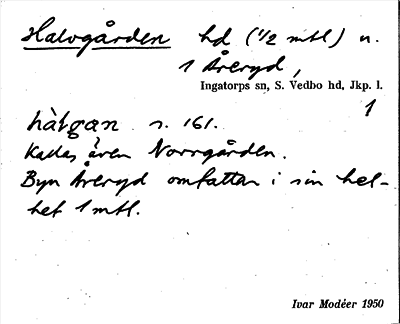 Halvgården hd (1/2 mtl) n.
1 Åreryd,
Ingatorps sn, S. Vedbo hd, Jkp. l.
1
hàlgan s. 161.
Kallas även Norrgården.
Byn Åreryd omfattar i sin hel-
het 1 mtl.
Ivar Modéer 1950